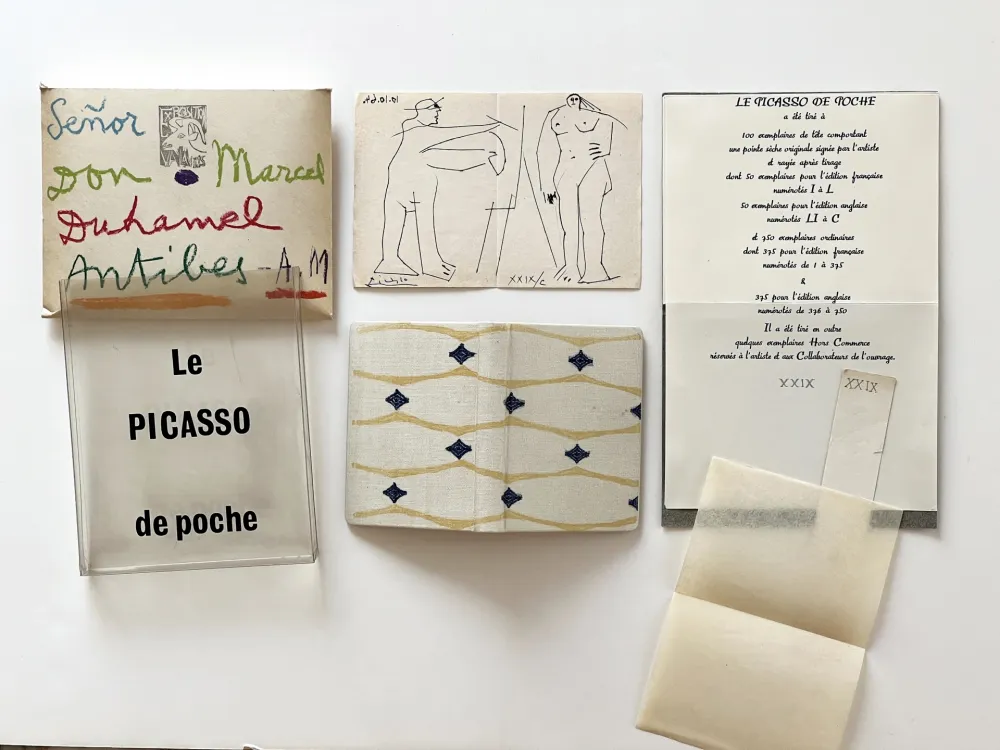 Señor
EXPOSITION
VALLAURIS
Don Marcel
Duhamel
Antibes - A M
Le
PICASSO
de poche
10.10.64.
Picasso
XXIX/C
LE PICASSO DE POCHE
a été tiré à
100 exemplaires de tête comportant
une pointe sèche originale signée par l'artiste
et rayée après tirage
dont 50 exemplaires pour l'édition française
numérotés I à L
50 exemplaires pour l'édition anglaise
numérotés LI à C
et 750 exemplaires ordinaires
dont 375 pour l'édition française
numérotés de 1 à 375
&
375 pour l'édition anglaise
numérotés de 376 à 750
Il a été tiré en outre
quelques exemplaires Hors Commerce
réservés à l'artiste et aux Collaborateurs de l'ouvrage.
XXIX
XXIX